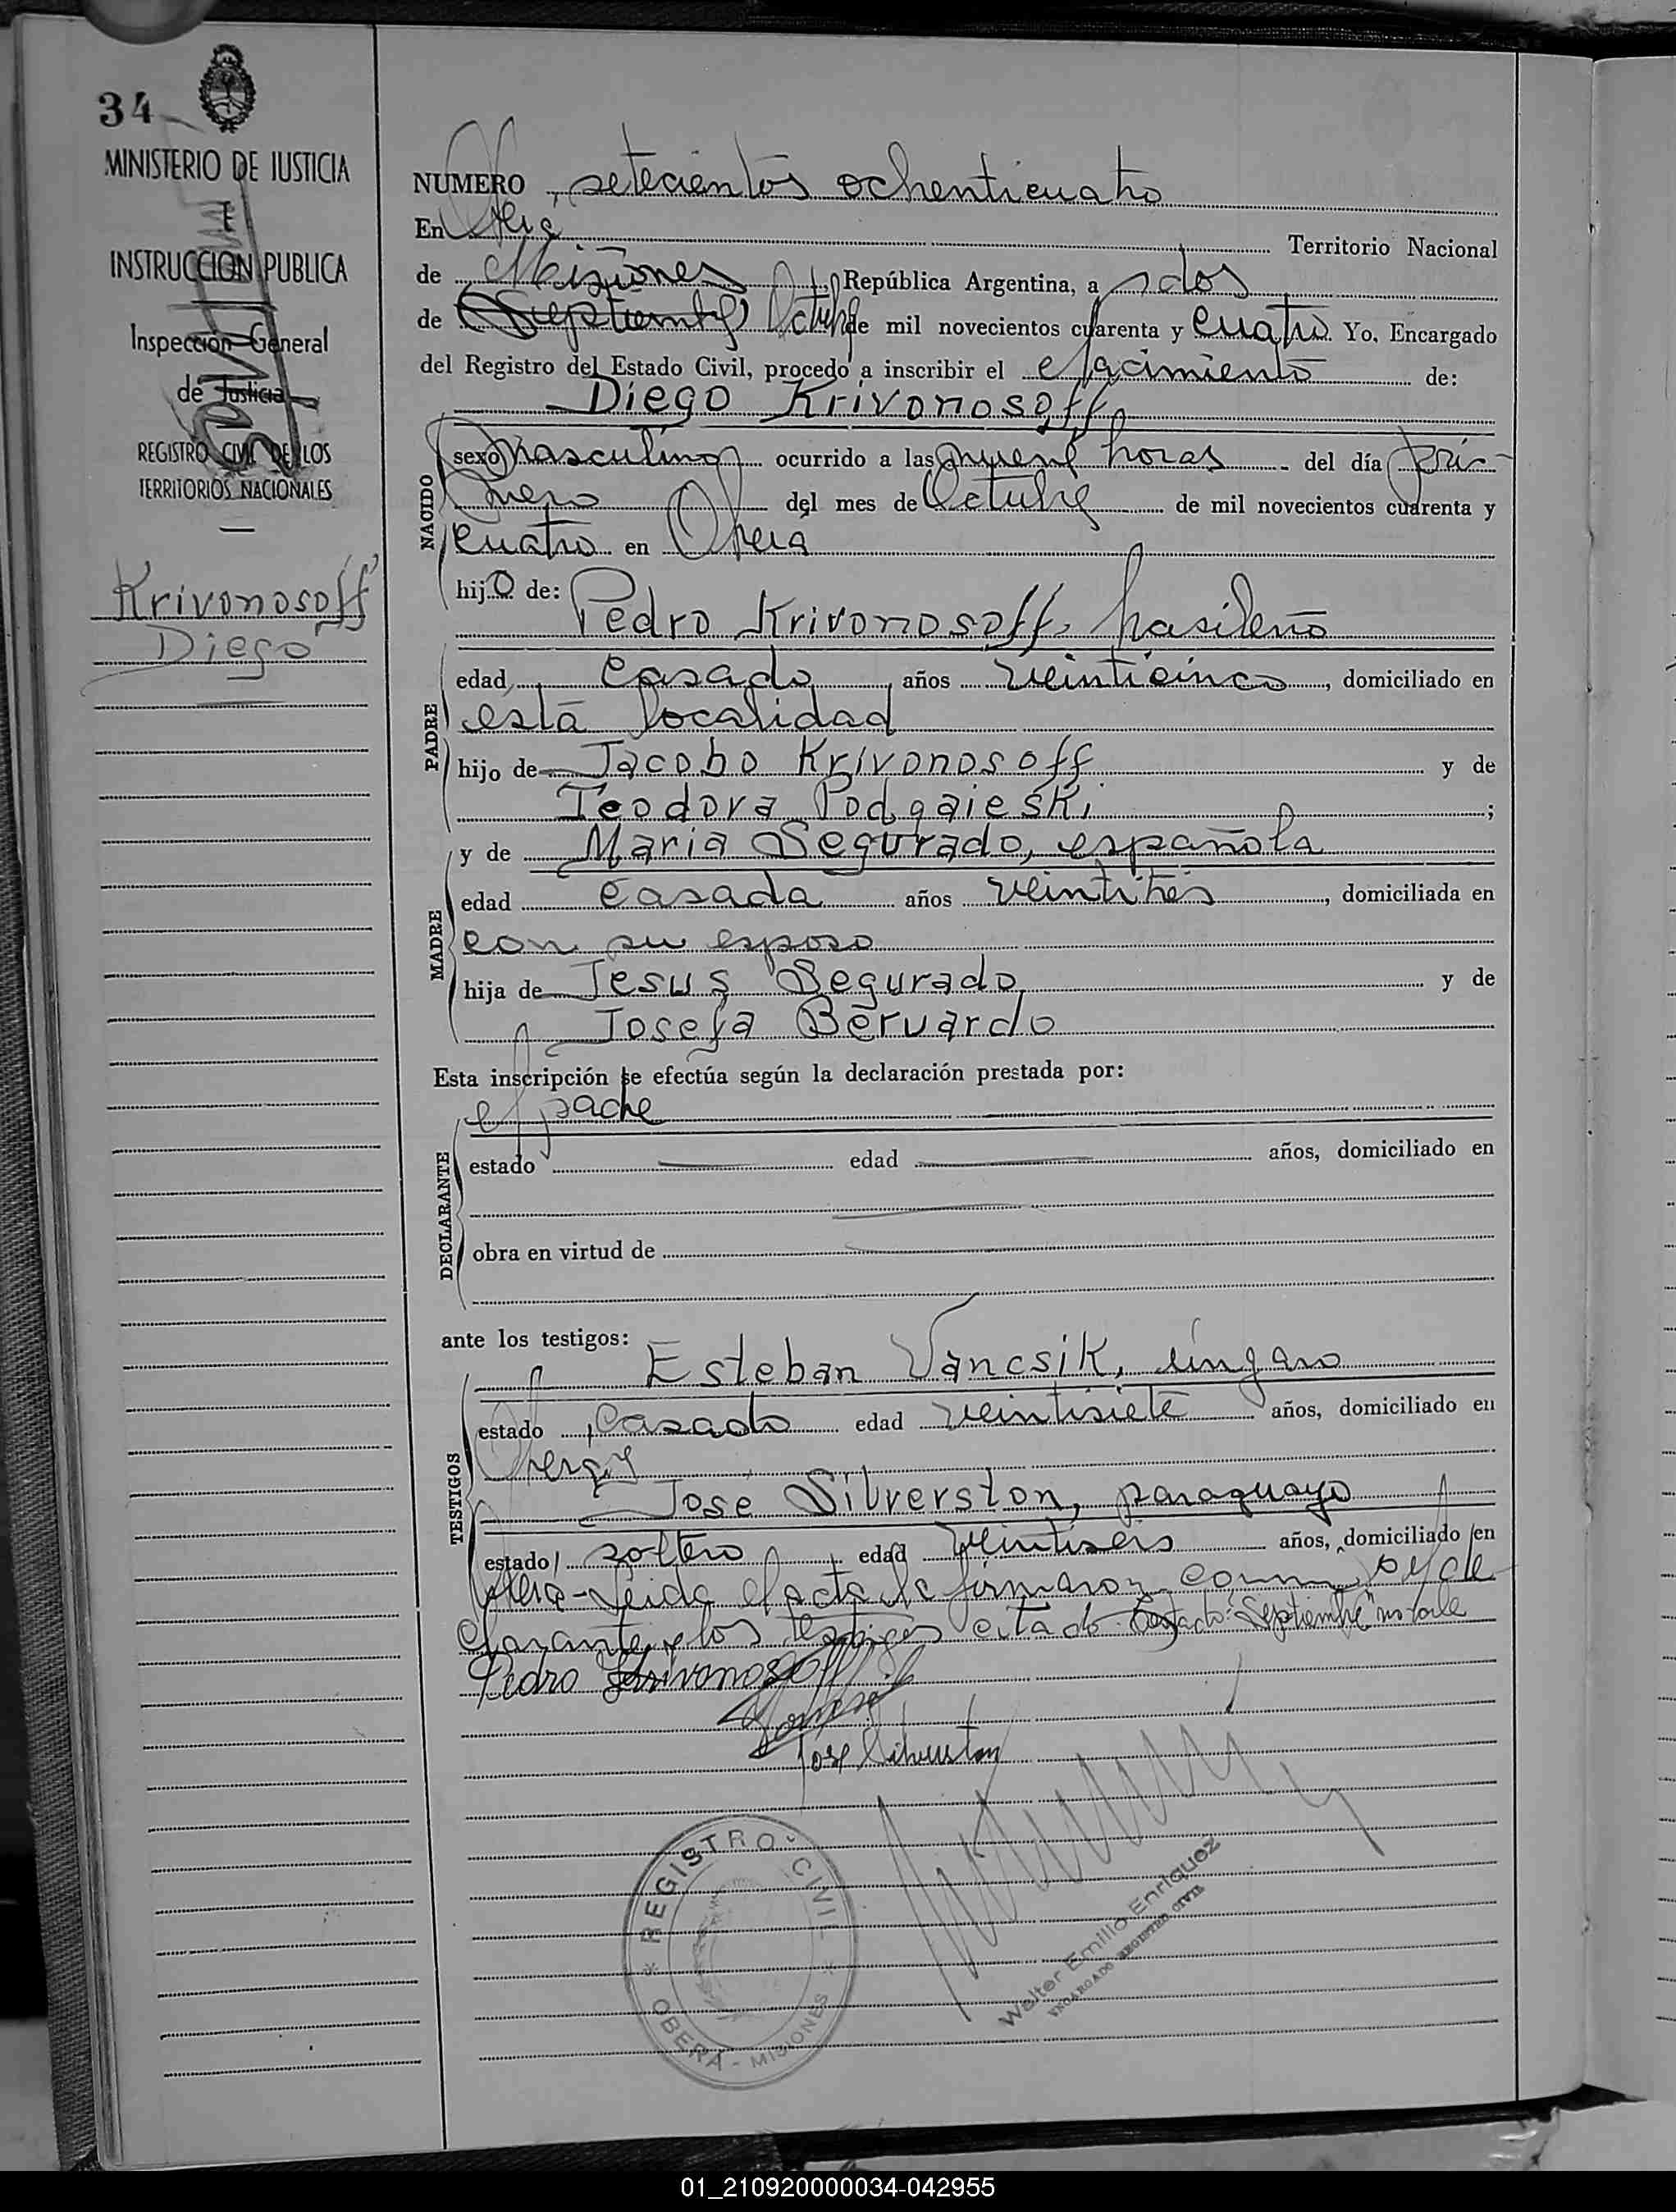 34
MINISTERIO DE JUSTICIA
E
INSTRUCCION PUBLICA
Inspección General
de Justicia
REGISTRO CIVIL DE LOS
TERRITORIOS NACIONALES
Krivonosoff
Diego
NUMERO setecientos ochenticuatro
En Oberá Territorio Nacional
de Misiones República Argentina, a dos
de Septiembre Octubre de mil novecientos cuarenta y cuatro Yo, Encargado
del Registro del Estado Civil, procedo a inscribir el nacimiento de:
Diego Krivonosoff
NACIDO
sexo masculino ocurrido a las nueve horas del día pri-
mero del mes de Octubre de mil novecientos cuarenta y
cuatro en Oberá
hijo de:
Pedro Krivonosoff, brasileño
PADRE
edad casado, años veinticinco, domiciliado en
esta localidad
hijo de Jacobo Krivonosoff y de
Teodora Podgaieski ;
MADRE
y de Maria Segurado, española
edad casada años veintitrés, domiciliada en
con su esposo
hija de Jesus Segurado y de
Josefa Beruardo
Esta inscripción se efectúa según la declaración prestada por:
DECLARANTE
el padre
estado edad años, domiciliado en
obra en virtud de
ante los testigos:
TESTIGOS
Esteban Vancsik, úngaro
estado casado edad veintisiete años, domiciliado en
Oberá y
José Silverston, paraguayo
estado soltero edad veintiseis años, domiciliado en
Oberá-Leida el acta la firmaron el de
clarante y los testigos citado Testado: "Septiembre" no vale
Pedro Krivonosoff
José Silverston
REGISTRO CIVIL
OBERÁ - MISIONES
Walter Emilio Enriquez
ENCARGADO REGISTRO CIVIL
01_210920000034-042955